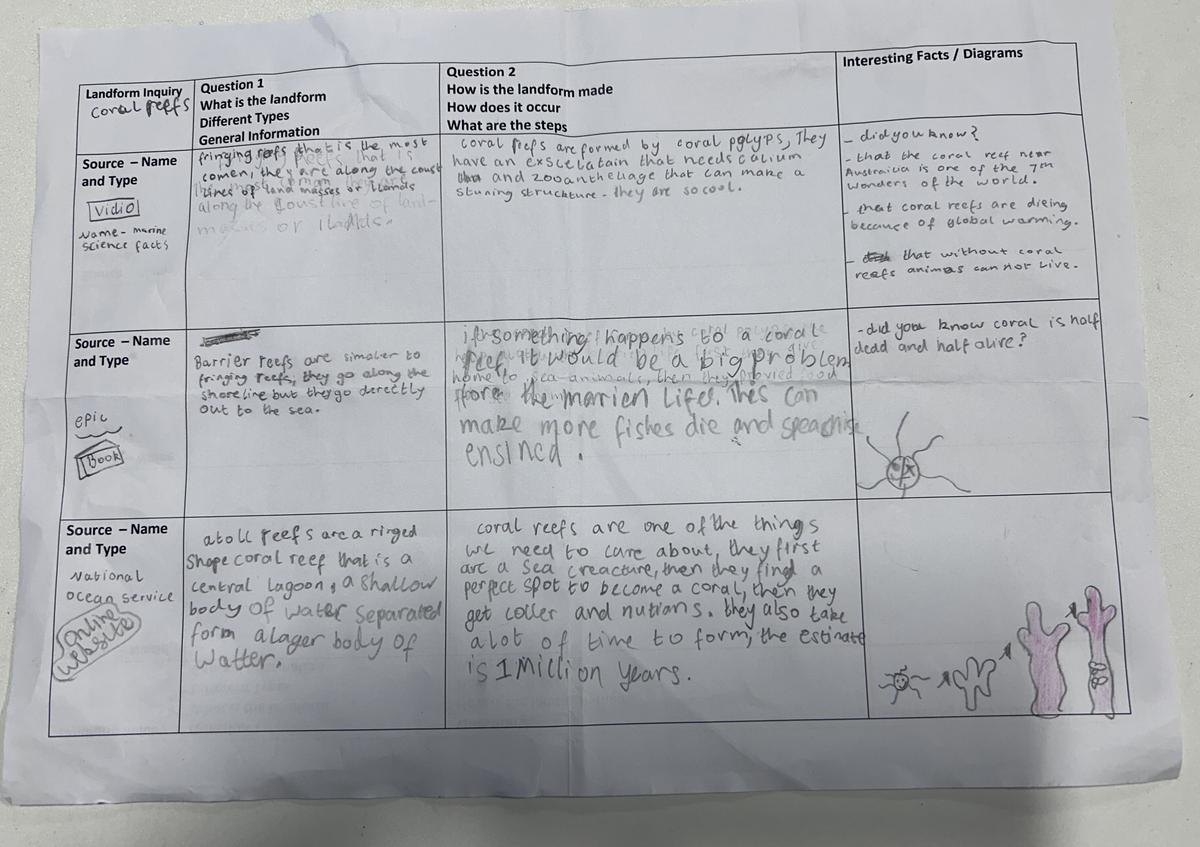 Landform Inquiry
coral reefs
Question 1
What is the landform
Different Types
General Information
Question 2
How is the landform made
How does it occur
What are the steps
Interesting Facts / Diagrams
Source – Name
and Type
Vidio
Name- marine
science facts
fringing reefs that is the most
comen, they are along the coust
lines of land masses or Ilands
along the coustline of land-
masses or Ilands.
coral reefs are formed by coral polyps, They
have an exscelatain that needs calium
and zooantheliage that can make a
stuning struckture - they are so cool.
- did you know?
- that the coral reef near
Austrailia is one of the 7th
wonders of the world.
- that coral reefs are dieing
because of global warming.
- that without coral
reefs animas can not live.
Source – Name
and Type
epic
Book
Barrier reefs are simaler to
fringing reefs, they go along the
shoreline but they go derectly
out to the sea.
if something happens to a coral
reef it would be a big problem
home to sea animals, then they
fore the marien life. This can
make more fishes die and
ensined.
-did you know coral is half
dead and half alive?
Source – Name
and Type
National
ocean service
online
website
atoll reefs are a ringed
shape coral reef that is a
central lagoon, a shallow
body of water separated
form a lager body of
watter.
coral reefs are one of the things
we need to care about, they first
are a sea creacture, then they find a
perfect spot to become a coral, then they
get coller and nutrians. they also take
a lot of time to form, the estimate
is 1 Million years.